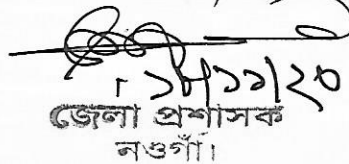 ১৮/১১/২০
জেলা প্রশাসক
নওগাঁ।